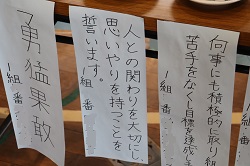 何事にも積極的に取り組
苦手をなくし目標を達成
一組 番
人との関わりを大切にし、
思いやりを持つことを
誓います。
一組 番
勇猛果敢
一組 番